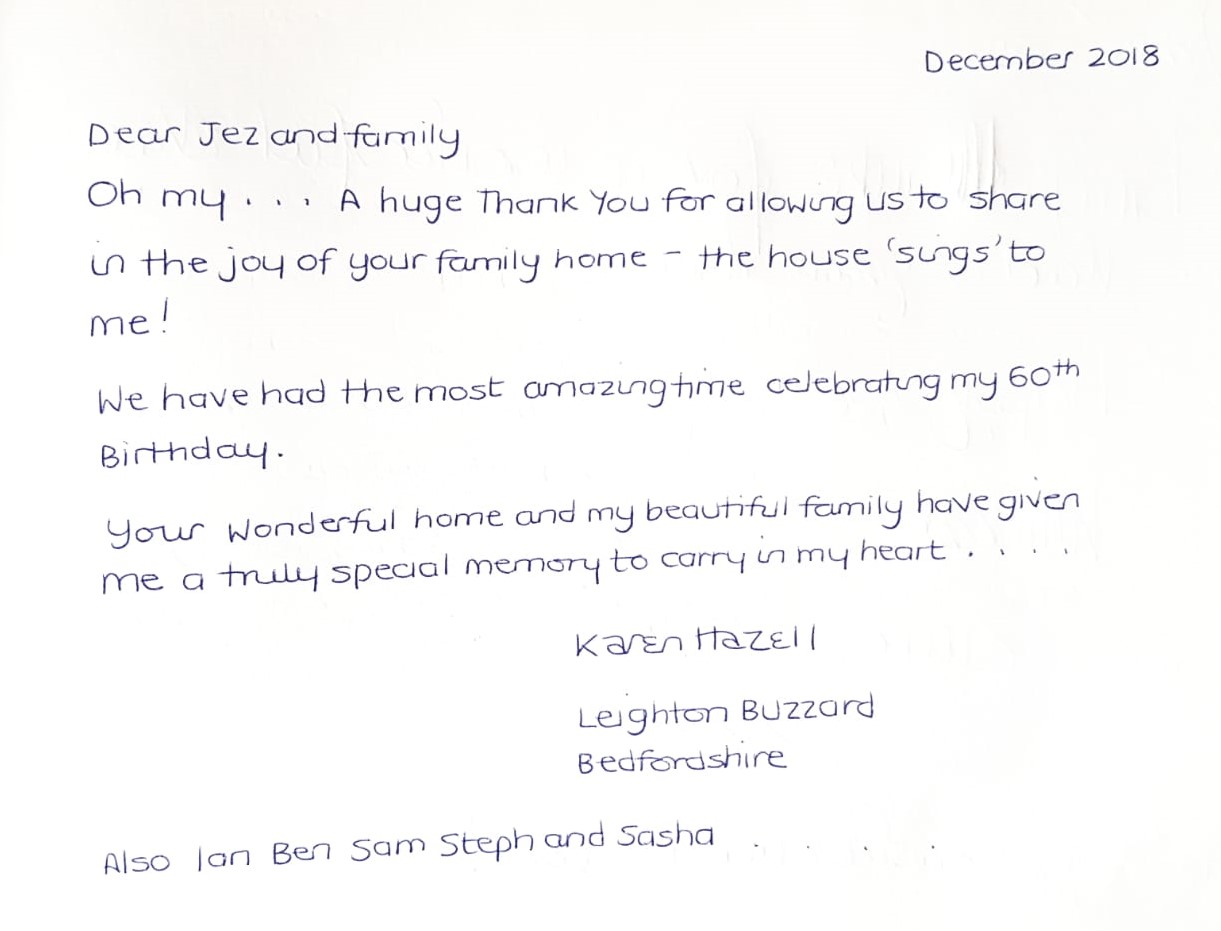 December 2018
Dear Jez and family
Oh my . . . A huge Thank You for allowing us to share
in the joy of your family home - the house 'sings' to
me!
We have had the most amazing time celebrating my 60th
Birthday.
Your wonderful home and my beautiful family have given
me a truly special memory to carry in my heart . . . .
Karen Hazell
Leighton Buzzard
Bedfordshire
Also Ian Ben Sam Steph and Sasha . . . .